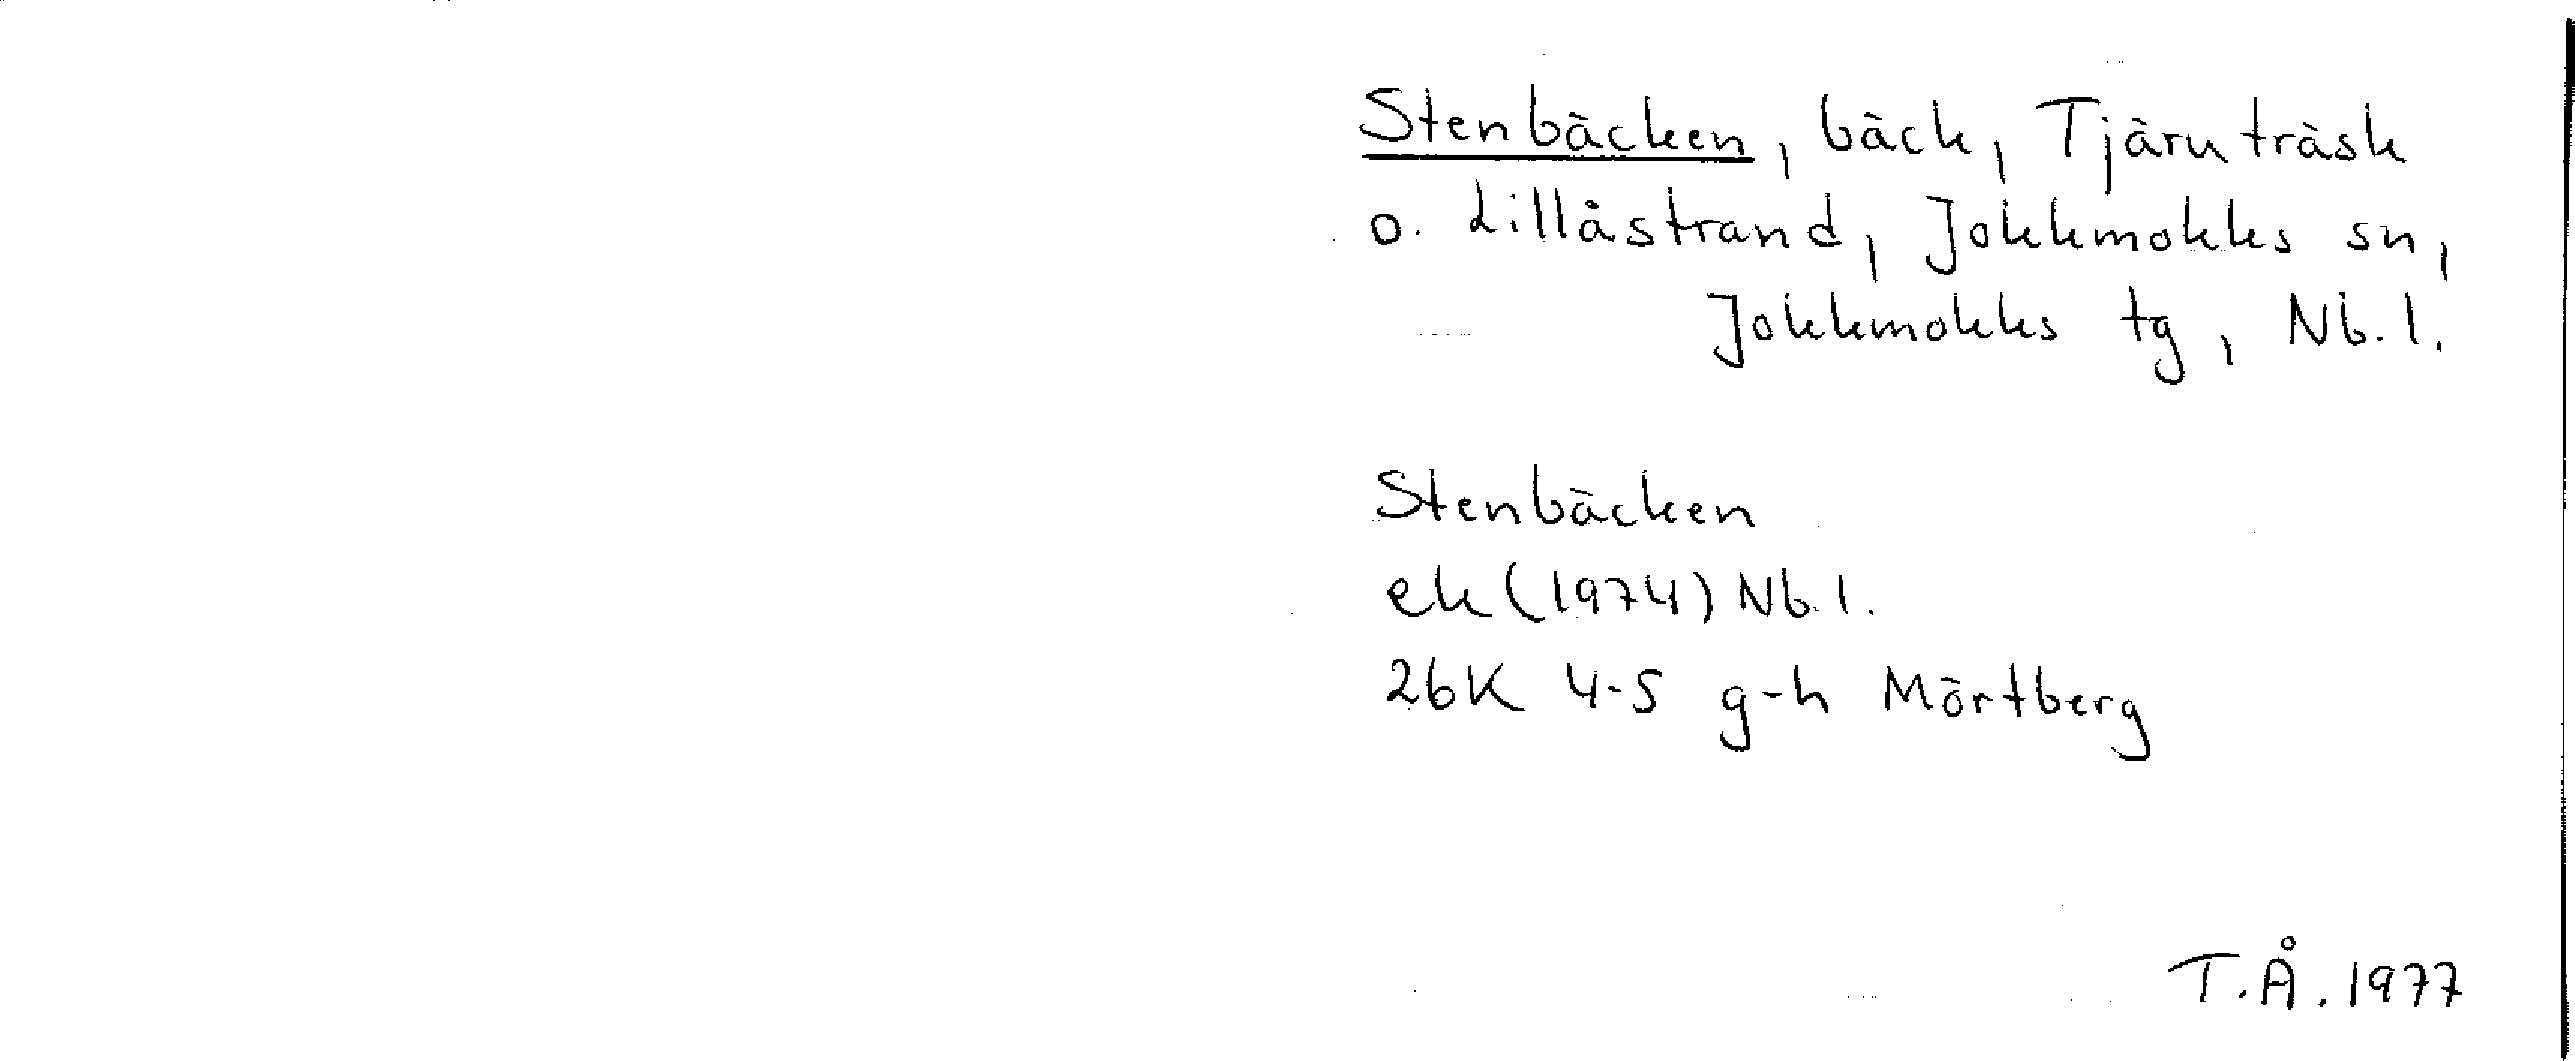 Stenbäcken, bäck, Tjäruträsk
o. Lillåstrand, Jokkmokks sn,
Jokkmokks tg, Nb.l.
Stenbäcken
ek (1974) Nb.l.
26K 4-5 g-h Mörtberg
T.Å. 1977